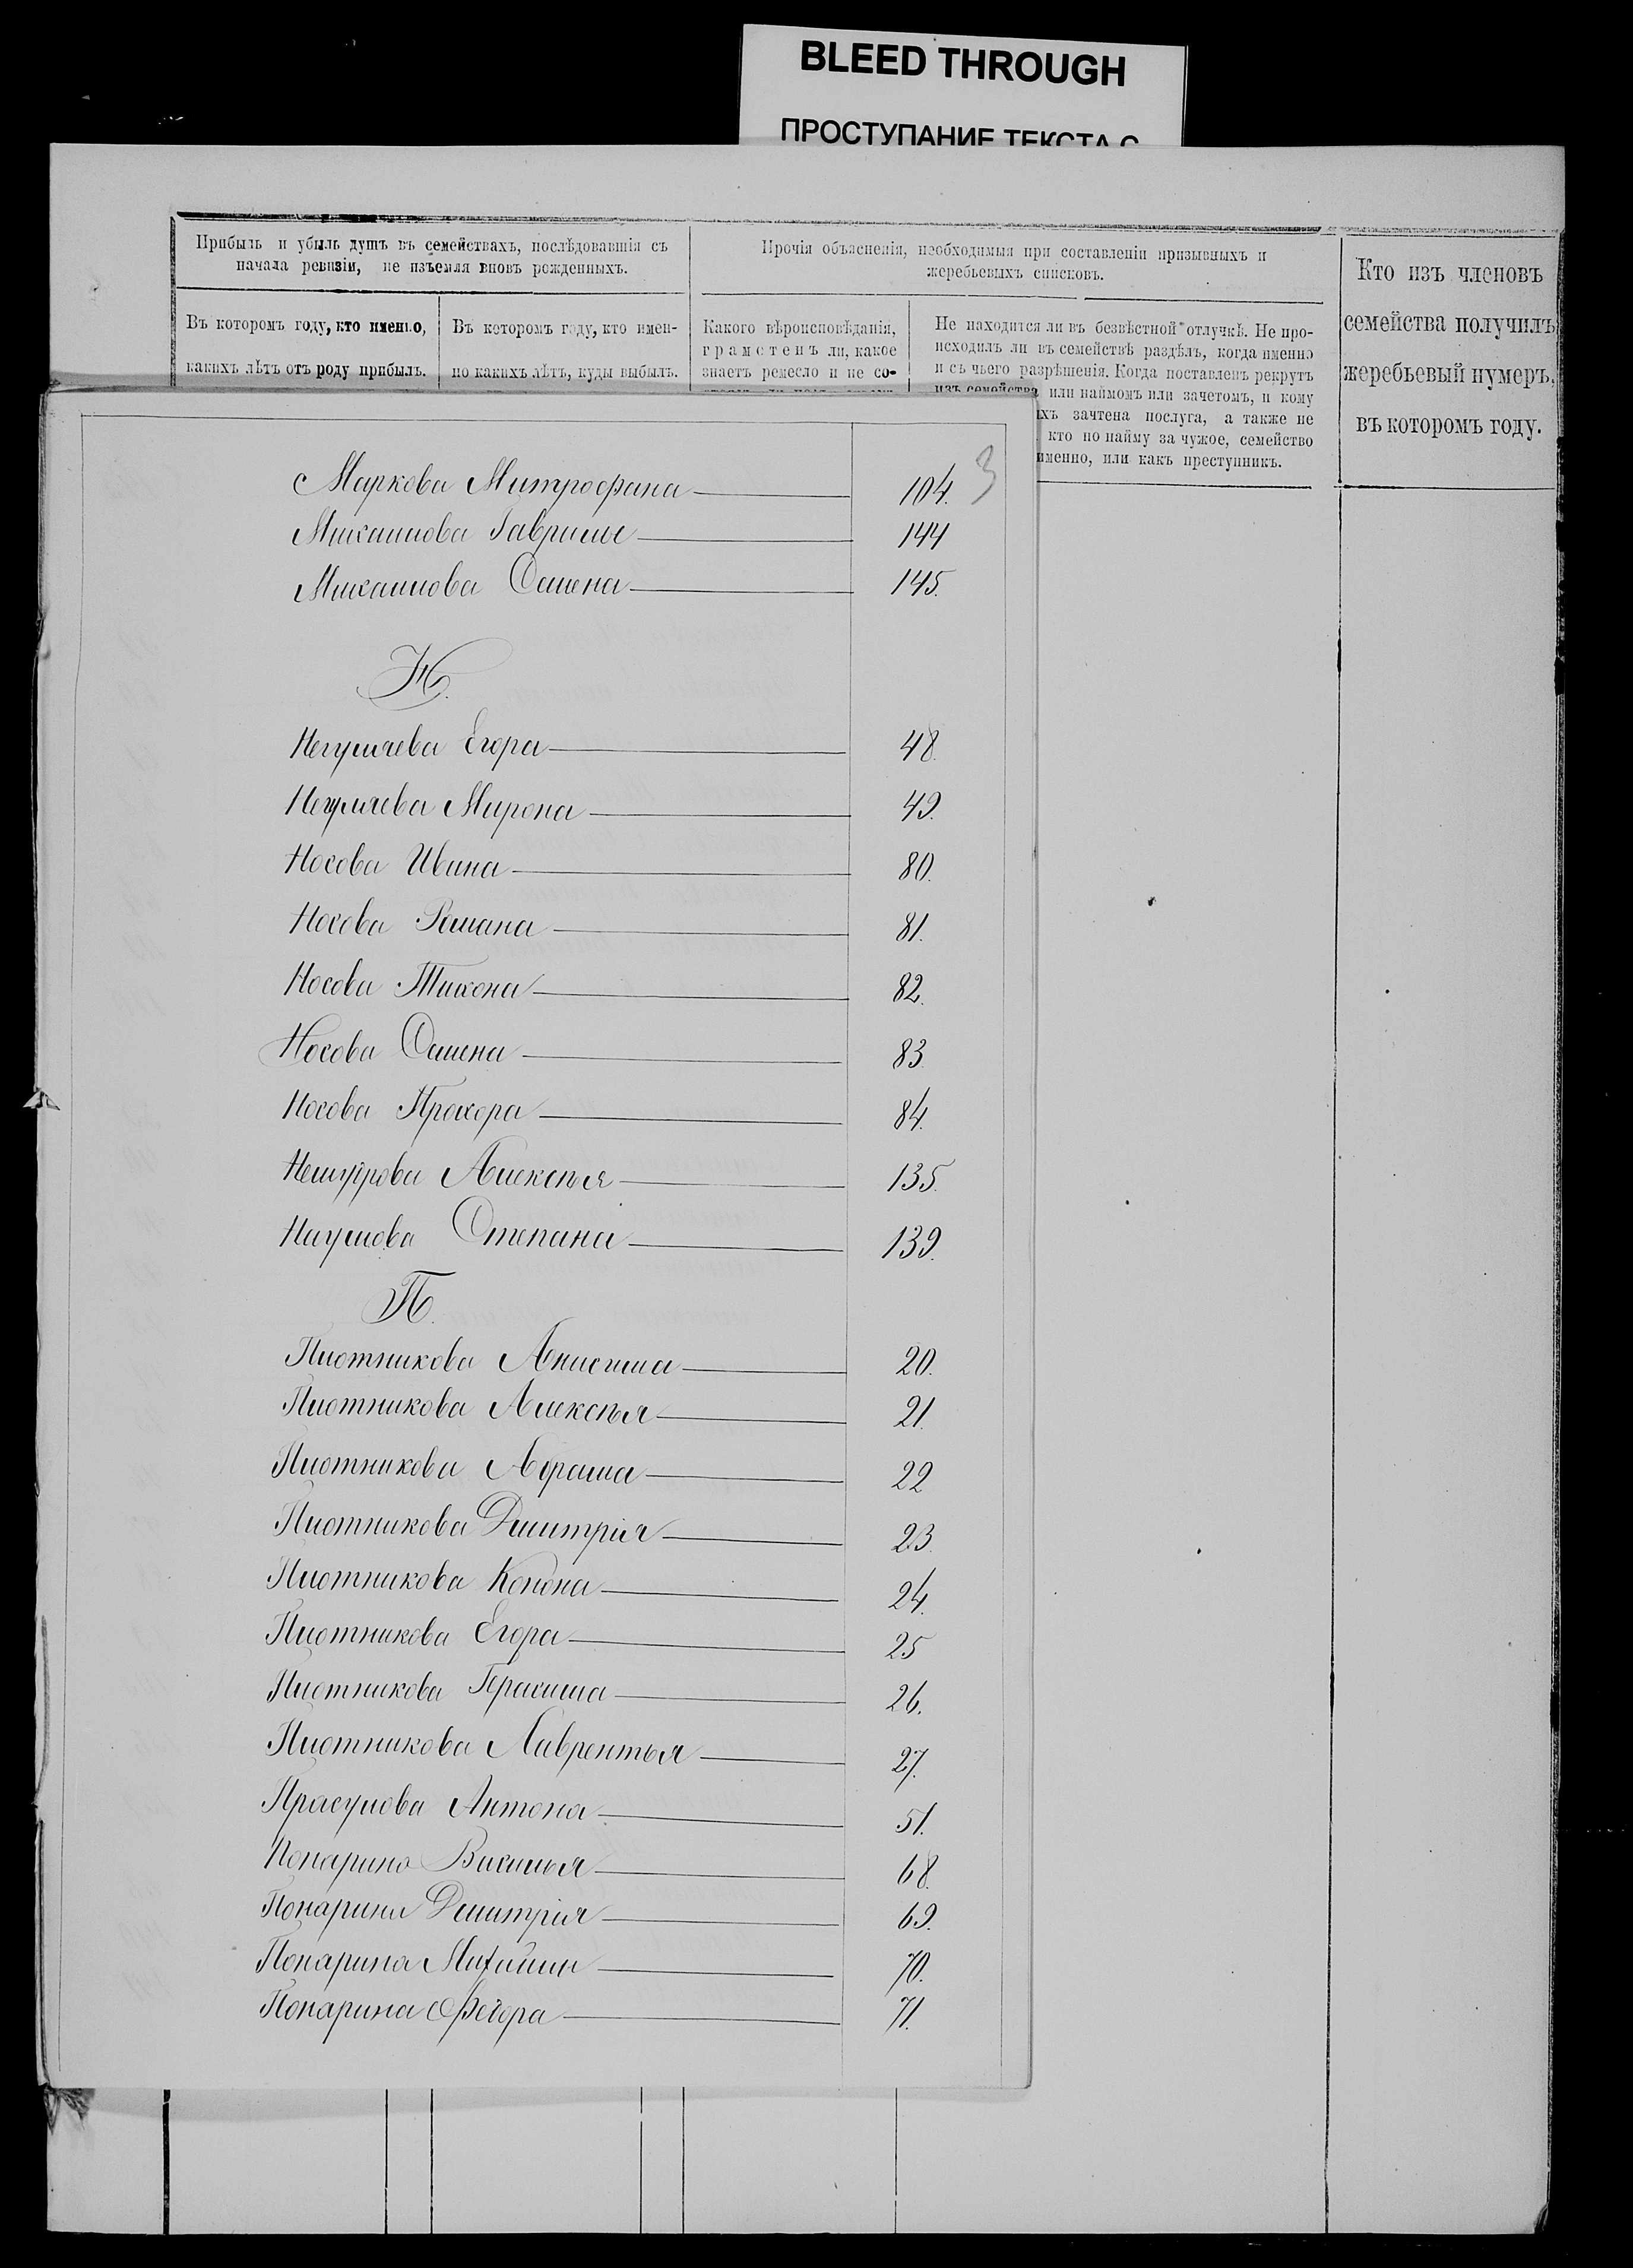 BLEED THROUGH
ПРОСТУПАНИЕ ТЕКСТА С
Прибыль и убыль душъ въ семействахъ, послѣдовавшія съ
начала ревизіи, не изъемля вновь рожденныхъ.
Въ которомъ году, кто именно,
какихъ лѣтъ отъ роду прибылъ.
Въ которомъ году, кто имен-
но какихъ лѣтъ, куды выбылъ.
Прочія объясненія, необходимыя при составленіи призывныхъ и
жеребьевыхъ списковъ.
Какого вѣроисповѣданія,
грамотенъ ли, какое
знаетъ ремесло и не со-
Не находится ли въ безвѣстной отлучкѣ. Не про-
исходилъ ли въ семействѣ раздѣлъ, когда именно
и съ чьего разрѣшенія. Когда поставленъ рекрутъ
изъ семейства или наймомъ или зачетомъ, и кому
ихъ зачтена послуга, а также не
кто по найму за чужое, семейство
именно, или какъ преступникъ.
Кто изъ членовъ
семейства получилъ
жеребьевый нумеръ,
въ которомъ году.
3
Маркова Митрофана 104.
Михайлова Гаврилы 144
Михайлова Семена 145.
Н.
Негуляева Егора 48.
Негуляева Мирона 49.
Носова Ивана 80.
Носова Романа 81.
Носова Тихона 82.
Носова Семена 83
Носова Прохора 84.
Алексѣя 135.
Наумова Степана 139.
П.
Плотникова Анисима 20.
Плотникова Алексѣя 21.
Плотникова Абрама 22
Плотникова Дмитрія 23.
Плотникова Конона 24.
Плотникова Егора 25
Плотникова Герасима 26.
Плотникова Лаврентья 27.
Прасулова Антона 51.
Понарина Василья 68.
Понарина Дмитрія 69.
Понарина Михаила 70.
Понарина Федора 71.